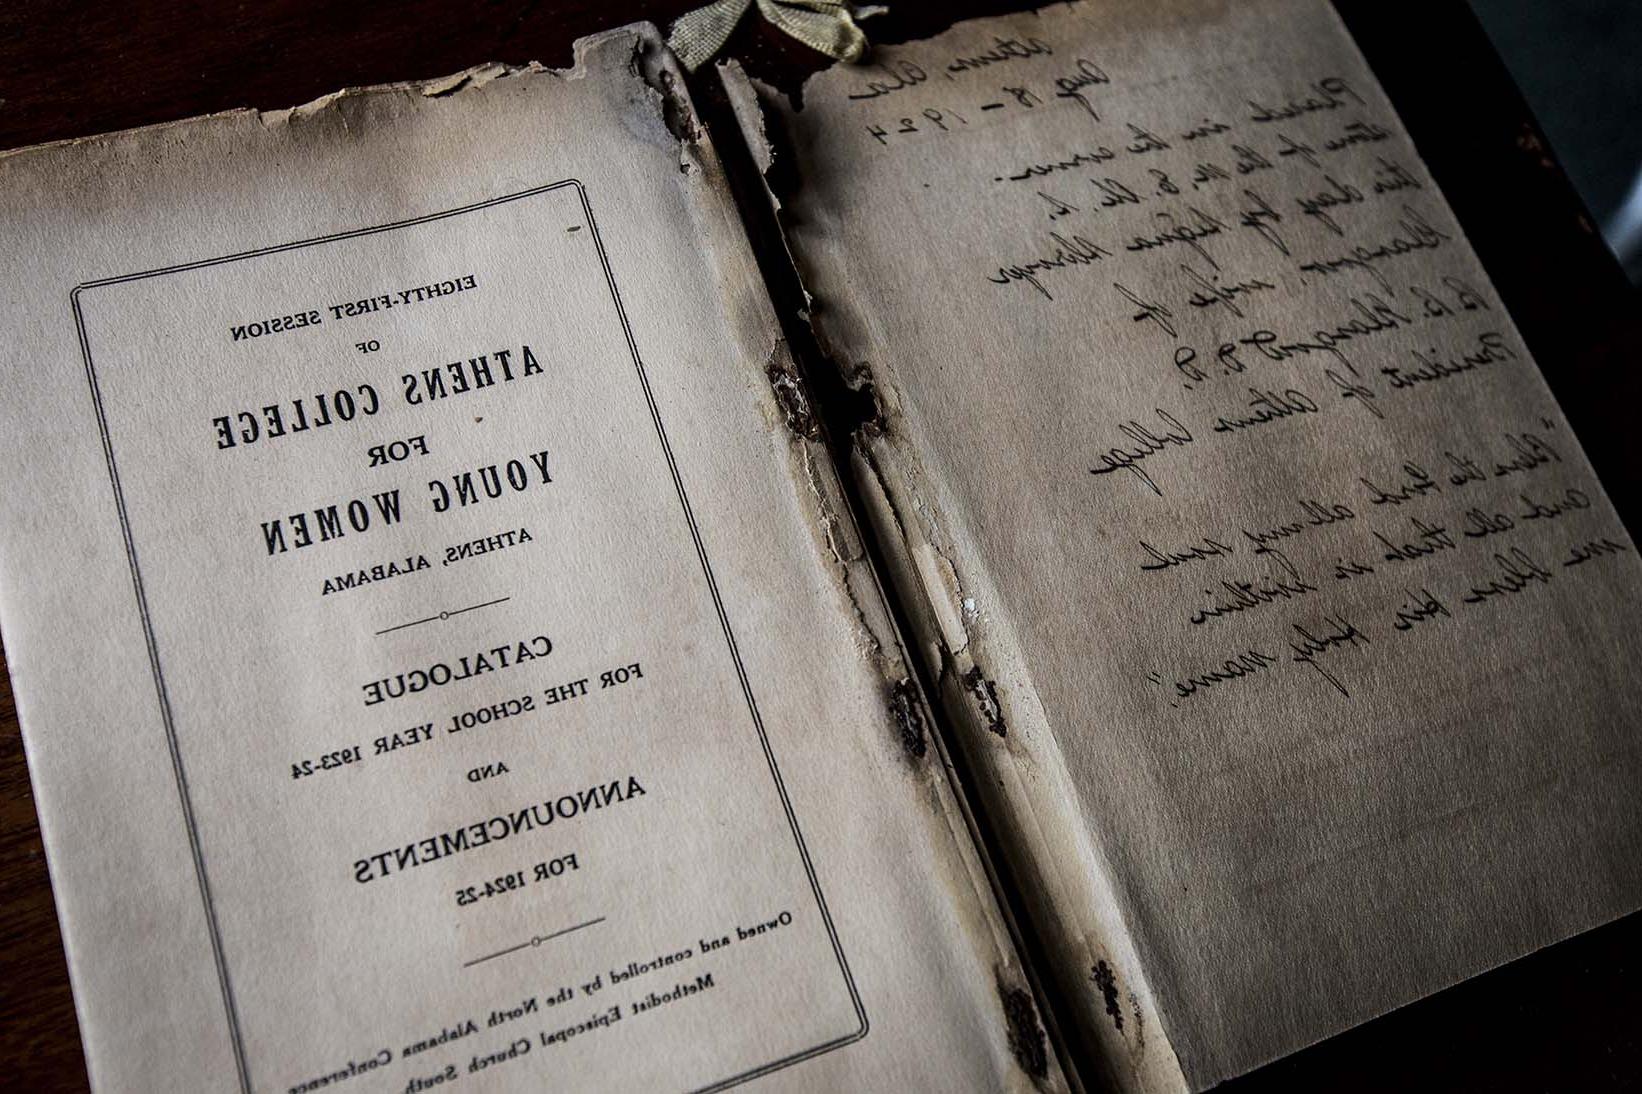 Athens, Ala
Aug 18 – 1924
Placed in the corner-
stone of the M. E. Ch. S.
this day by
wife of
B. B. Glasgow D.D.
President of Athens College
"Bless the Lord all my soul
and all that is within
me bless His Holy name".
EIGHTY-FIRST SESSION
OF
ATHENS COLLEGE
FOR
YOUNG WOMEN
ATHENS, ALABAMA
CATALOGUE
FOR THE SCHOOL YEAR 1923-24
AND
ANNOUNCEMENTS
FOR 1924-25
Owned and controlled by the North Alabama Conference
Methodist Episcopal Church South